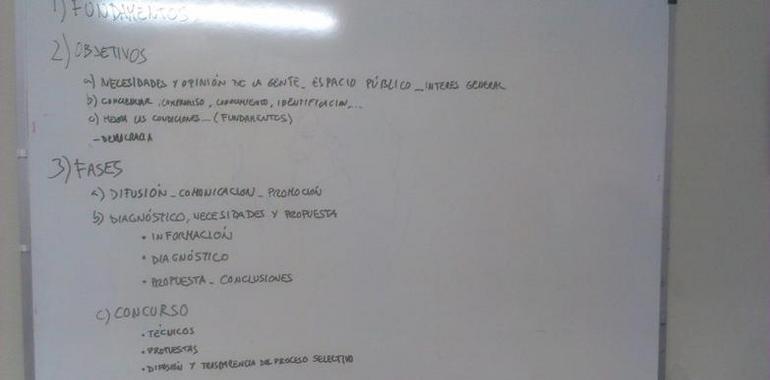 1) FUNDAMENTOS
2) OBJETIVOS
a) NECESIDADES Y OPINIÓN DE LA GENTE_ ESPACIO PÚBLICO _ INTERES GENERAL
b) CONCIENCIAR, COMPROMISO, CONOCIMIENTO, IDENTIFICACION, ...
c) MEJORA LAS CONDICIONES _ (FUNDAMENTOS)
- DEMOCRACIA
3) FASES
a) DIFUSIÓN _ COMUNICACION _ PROMOCIÓN
b) DIAGNÓSTICO, NECESIDADES Y PROPUESTA
• INFORMACIÓN
• DIAGNÓSTICO
• PROPUESTA _ CONCLUSIONES
c) CONCURSO
• TÉCNICOS
• PROPUESTAS
• DIFUSIÓN Y TRASPARENCIA DEL PROCESO SELECTIVO